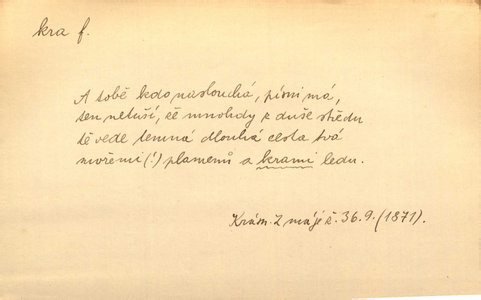 kra f.
A tobě kdo naslouchá, písni má,
ten netuší, že mnohdy z duše středu
tě vede temná dlouhá cesta tvá
mořemi (!) plamenů a krami ledu.
Krám. Z máje č. 36.9. (1871).